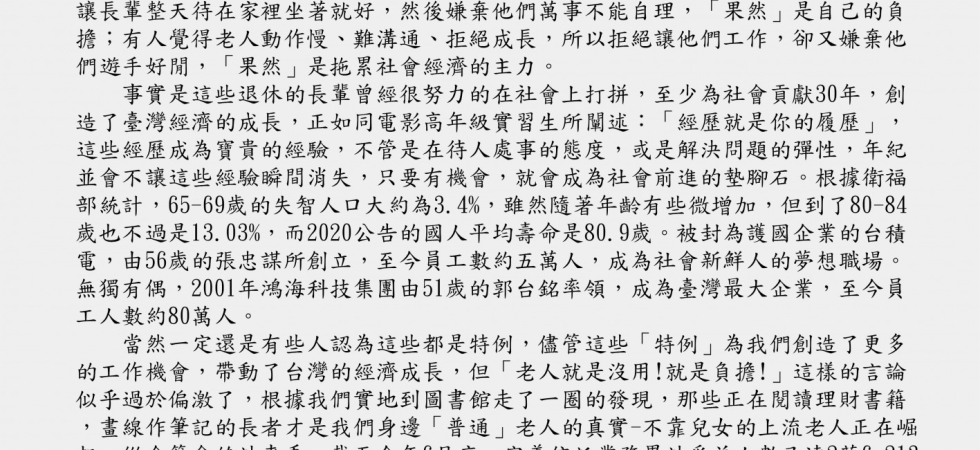 讓長輩整天待在家裡坐著就好，然後嫌棄他們萬事不能自理，「果然」是自己的負
擔；有人覺得老人動作慢、難溝通、拒絕成長，所以拒絕讓他們工作，卻又嫌棄他
們遊手好閒，「果然」是拖累社會經濟的主力。
事實是這些退休的長輩曾經很努力的在社會上打拼，至少為社會貢獻30年，創
造了臺灣經濟的成長，正如同電影高年級實習生所闡述：「經歷就是你的履歷」，
這些經歷成為寶貴的經驗，不管是在待人處事的態度，或是解決問題的彈性，年紀
並會不讓這些經驗瞬間消失，只要有機會，就會成為社會前進的墊腳石。根據衛福
部統計，65-69歲的失智人口大約為3.4%，雖然隨著年齡有些微增加，但到了80-84
歲也不過是13.03%，而2020公告的國人平均壽命是80.9歲。被封為護國企業的台積
電，由56歲的張忠謀所創立，至今員工數約五萬人，成為社會新鮮人的夢想職場。
無獨有偶，2001年鴻海科技集團由51歲的郭台銘率領，成為臺灣最大企業，至今員
工人數約80萬人。
當然一定還是有些人認為這些都是特例，儘管這些「特例」為我們創造了更多
的工作機會，帶動了台灣的經濟成長，但「老人就是沒用!就是負擔!」這樣的言論
似乎過於偏激了，根據我們實地到圖書館走了一圈的發現，那些正在閱讀理財書籍
，畫線作筆記的長者才是我們身邊「普通」老人的真實-不靠兒女的上流老人正在崛